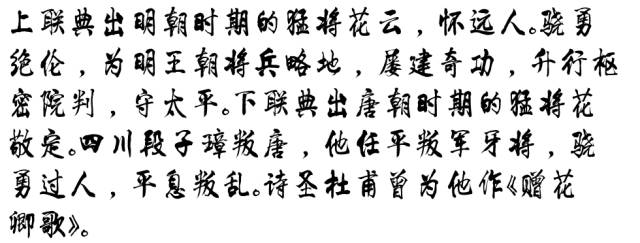 上联典出明朝时期的猛将花云，怀远人。骁勇
绝伦，为明王朝将兵略地，屡建奇功，升行枢
密院判，守太平。下联典出唐朝时期的猛将花
敬定。四川段子璋叛唐，他任平叛军牙将，骁
勇过人，平息叛乱。诗圣杜甫曾为他作《赠花
卿歌》。